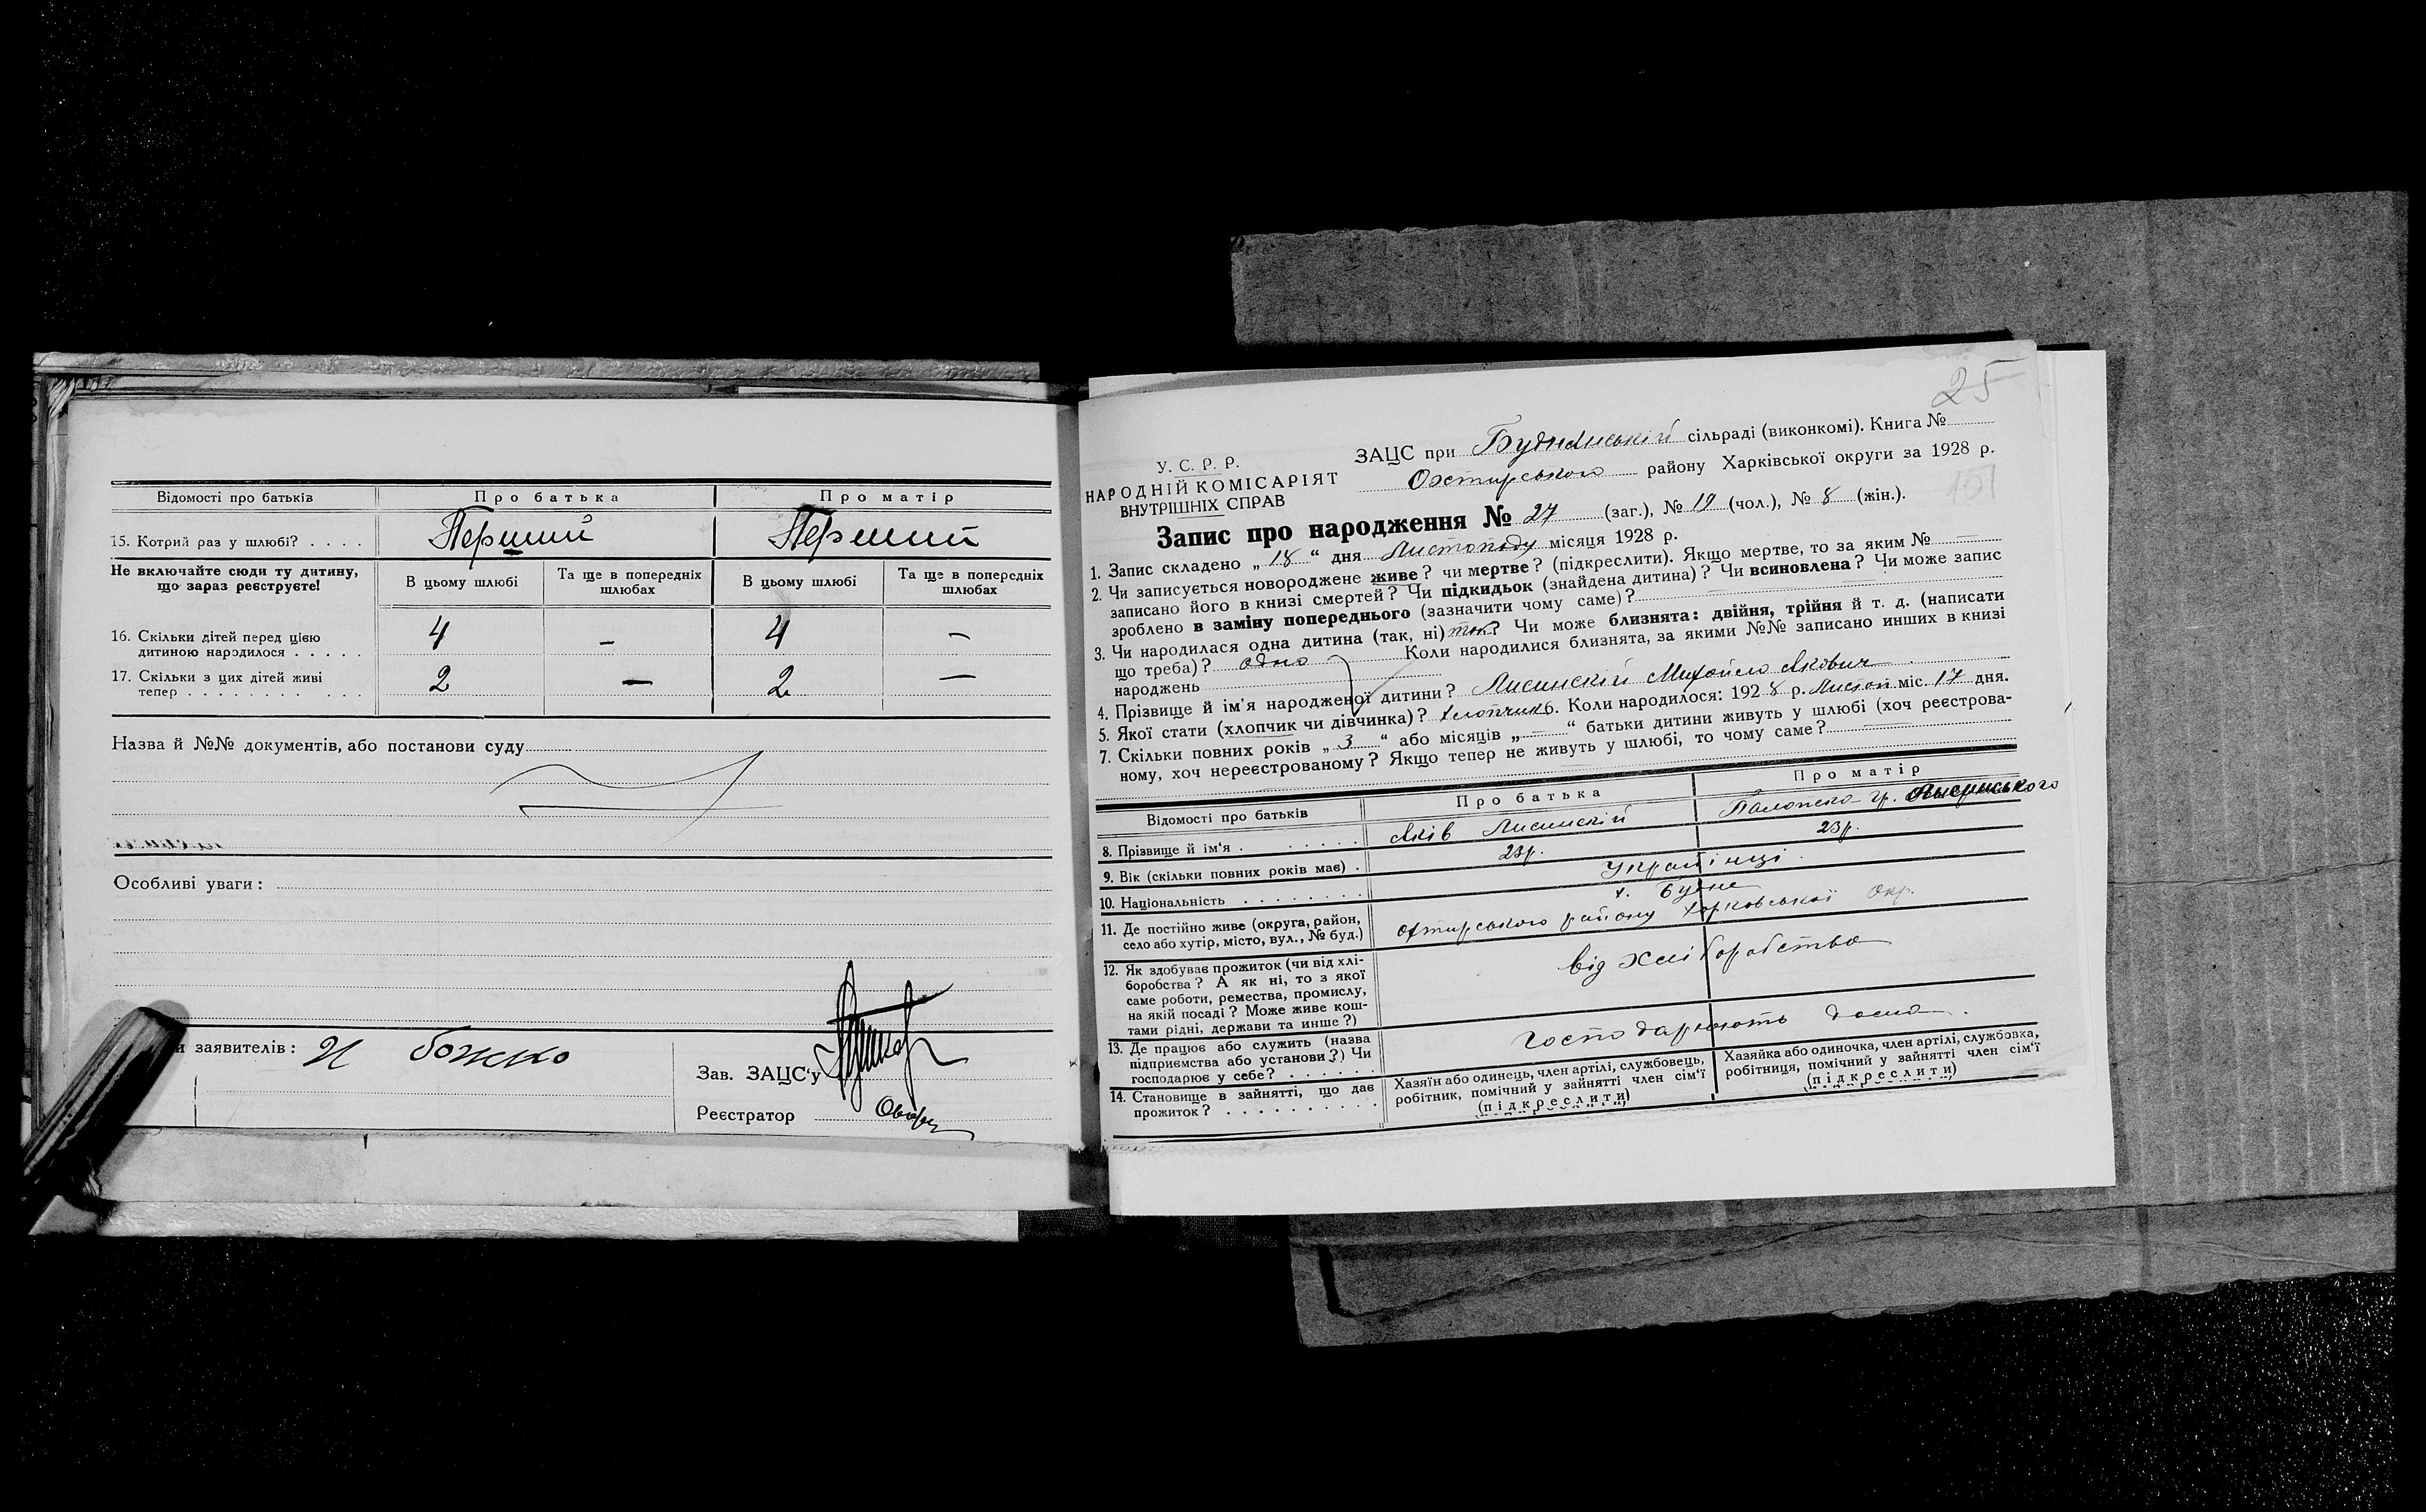 Відомості про батьків
Про батька
Про матір
15. Котрий раз у шлюбі? . . . .
Перший
Перший
Не включайте сюди ту дитину, що зараз реєструєте!
В цьому шлюбі
Та ще в попередніх шлюбах
В цьому шлюбі
Та ще в попередніх шлюбах
16. Скільки дітей перед цією
дитиною народилося . . . . .
4 — 4 —
17. Скільки з цих дітей живі
тепер . . . . . . . . . . .
2 — 2 —
Назва й №№ документів, або постанови суду
Особливі уваги:
и заявителів: И Божко
Зав. ЗАЦС'у
Реєстратор
25
У. С. Р. Р.
НАРОДНІЙ КОМІСАРІЯТ
ВНУТРІШНІХ СПРАВ
ЗАЦС при сільраді (виконкомі). Книга №
Охтирського району Харківської округи за 1928 р.
151
Запис про народження № 27 (заг.), № 19 (чол.), № 8 (жін.).
1. Запис складено „18“ дня Листопаду місяця 1928 р.
2. Чи записується новороджене живе? чи мертве? (підкреслити). Якщо мертве, то за яким № —
записано його в книзі смертей? Чи підкидьок (знайдена дитина)? Чи всиновлена? Чи може запис
зроблено в заміну попереднього (зазначити чому саме)?
3. Чи народилася одна дитина (так, ні) так? Чи може близнята: двійня, трійня й т. д. (написати
що треба)? одно Коли народилися близнята, за якими №№ записано инших в книзі
народжень
4. Прізвище й ім'я народженої дитини? Лисинскій Михайло Якович
5. Якої стати (хлопчик чи дівчинка)? хлопчикь. Коли народилося: 1928 р. Листоп міс. 17 дня.
7. Скільки повних років „3“ або місяців „—“ батьки дитини живуть у шлюбі (хоч реєстрова-
ному, хоч нереєстрованому? Якщо тепер не живуть у шлюбі, то чому саме?
Відомості про батьків
Про батька
Про матір
8. Прізвище й ім'я . . . . . .
Яків Лисинскій
гр. Лисинського
9. Вік (скільки повних років має) .
23р.
23р.
10. Національність . . . . . . .
Українці
11. Де постійно живе (округа, район,
село або хутір, місто, вул., № буд.)
х. Будне
Охтирського району Харковської Окр.
12. Як здобуває прожиток (чи від хлі-
боробства? А як ні, то з якої
саме роботи, ремества, промислу,
на якій посаді? Може живе кош-
тами рідні, держави та инше?)
від Хліборобства
13. Де працює або служить (назва
підприємства або установи?) Чи
господарює у себе? . . . . . .
Господарюють дома.
14. Становище в зайнятті, що дає
прожиток? . . . . . . . . . .
Хазяїн або одинець, член артілі, службовець,
робітник, помічний у зайнятті член сім'ї
(підкреслити)
Хазяйка або одиночка, член артілі, службовка,
робітниця, помічний у зайнятті член сім'ї
(підкреслити)